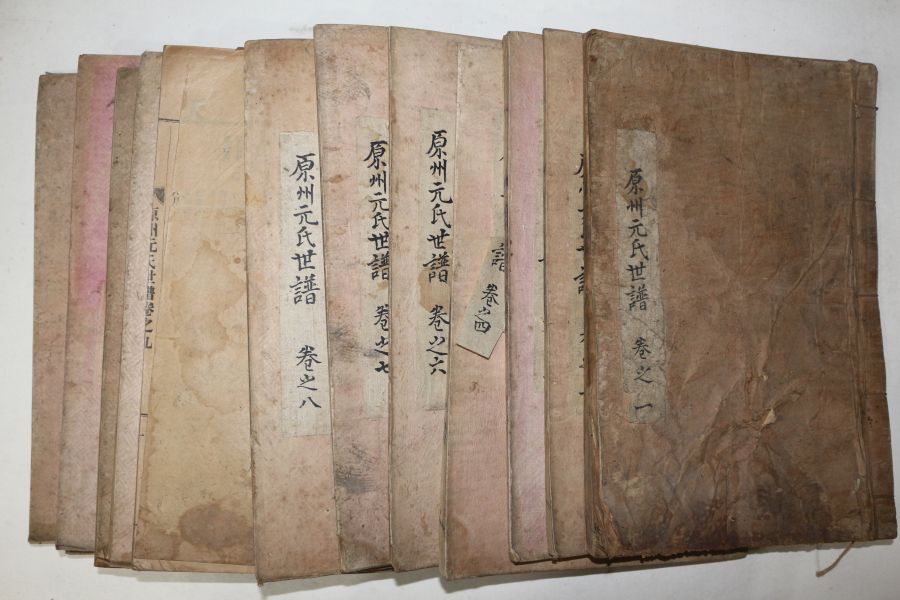 原州元氏世譜 卷之一
譜
卷之四
原州元氏世譜 卷之六
原州元氏世譜 卷之七
原州元氏世譜 卷之八
原州元氏世譜卷之九